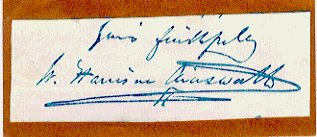 Yours faithfully
W. Harrison Ainsworth